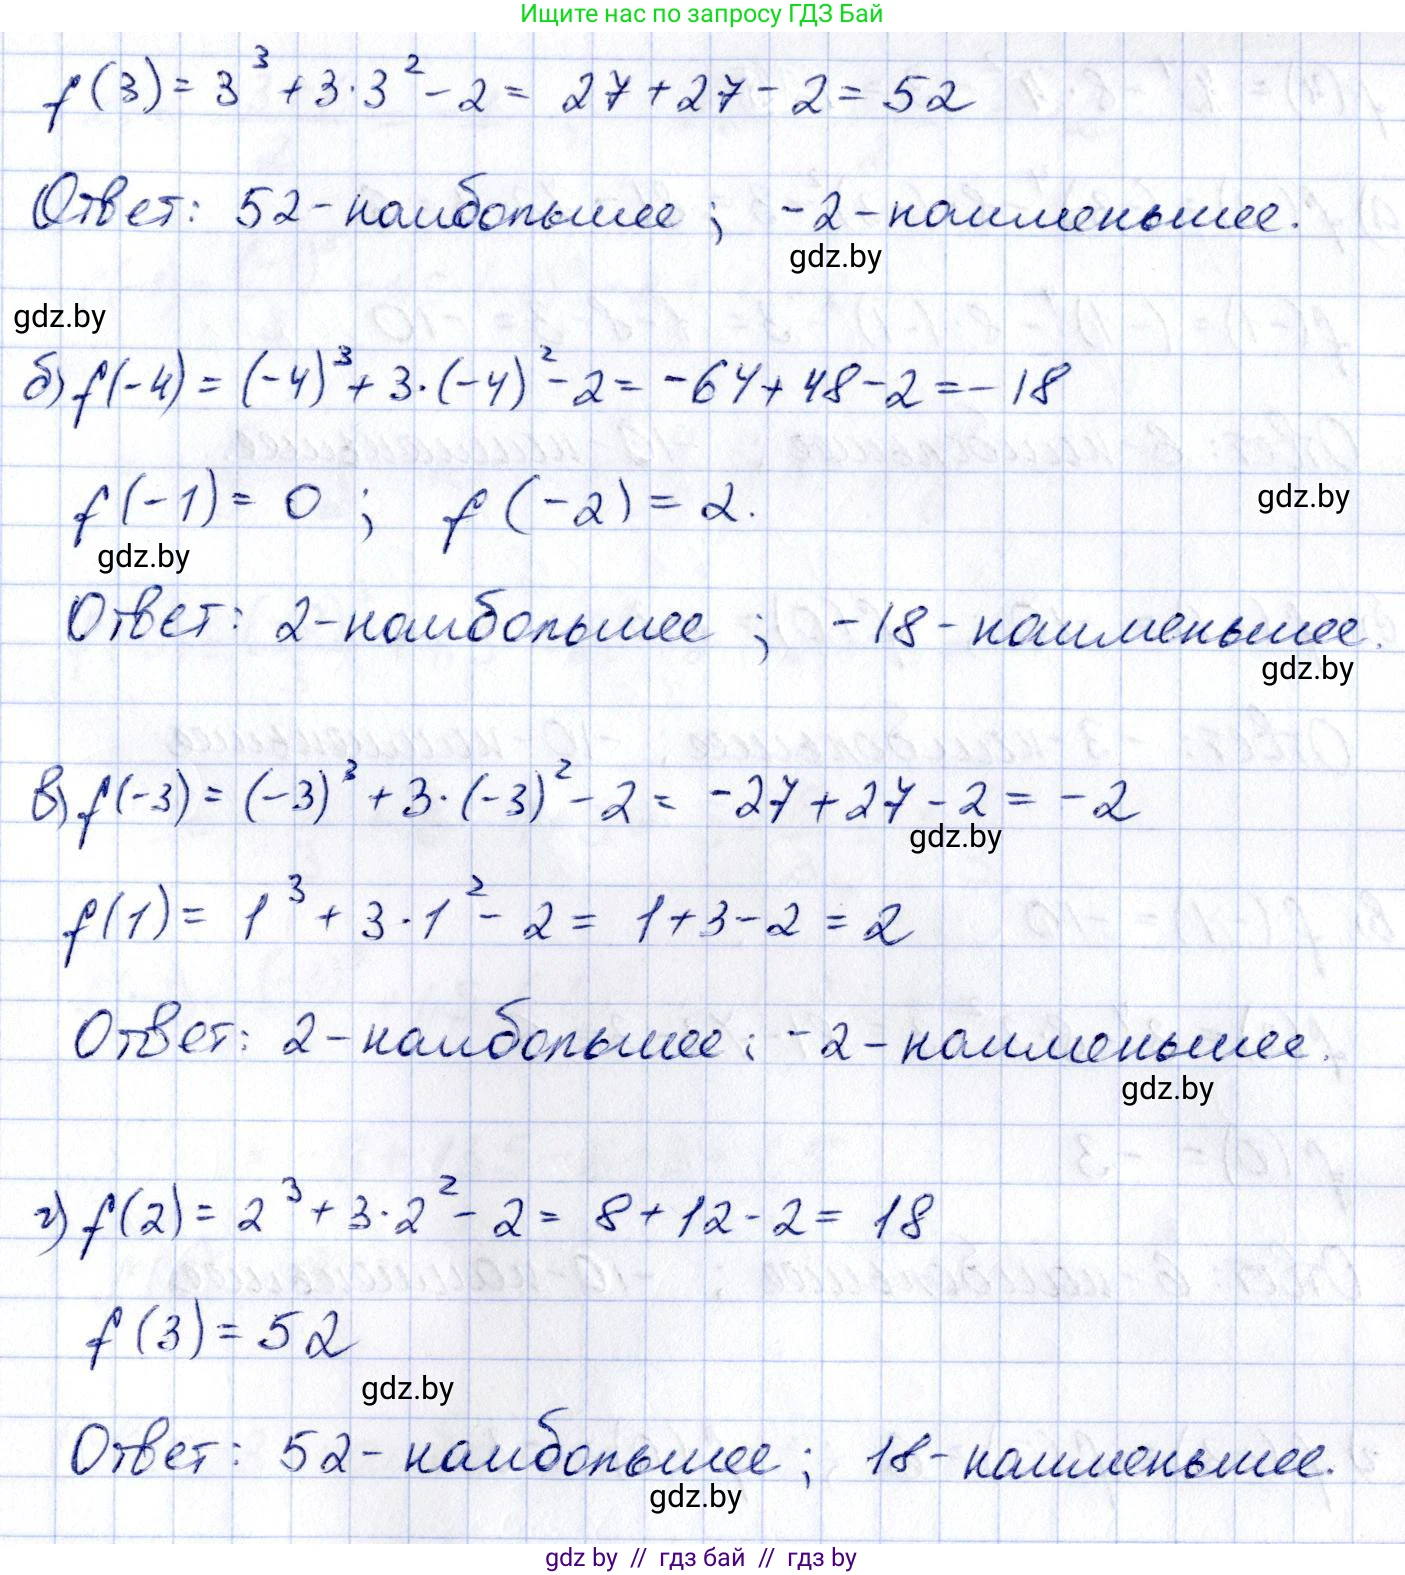 Ищите нас по запросу ГДЗ Бай
f(3) = 3³ + 3·3² - 2 = 27 + 27 - 2 = 52
Ответ: 52 - наибольшее; -2 - наименьшее.
gdz.by
gdz.by
б) f(-4) = (-4)³ + 3·(-4)² - 2 = -64 + 48 - 2 = -18
f(-1) = 0; f(-2) = 2.
gdz.by
gdz.by
Ответ: 2 - наибольшее; -18 - наименьшее.
gdz.by
в) f(-3) = (-3)³ + 3·(-3)² - 2 = -27 + 27 - 2 = -2
gdz.by
f(1) = 1³ + 3·1² - 2 = 1 + 3 - 2 = 2
Ответ: 2 - наибольшее; -2 - наименьшее.
gdz.by
г) f(2) = 2³ + 3·2² - 2 = 8 + 12 - 2 = 18
f(3) = 52
gdz.by
Ответ: 52 - наибольшее; 18 - наименьшее.
gdz.by
gdz by // гдз бай // гдз by